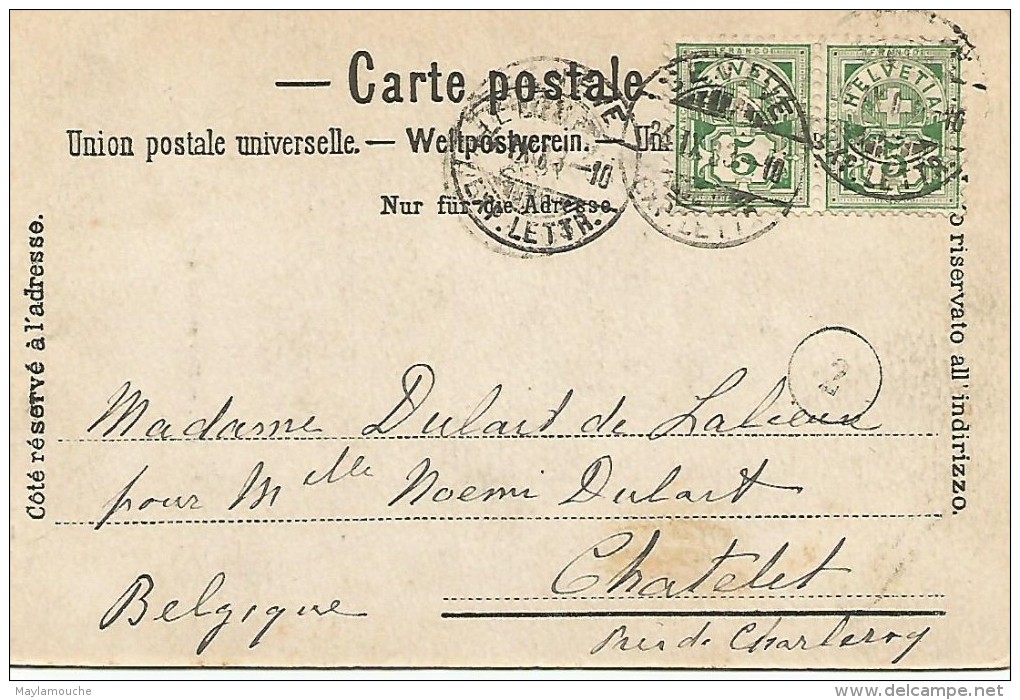 — Carte postale
Union postale universelle. — Weltpostverein. —
Nur für die Adresse.
Côté réservé à l'adresse.
riservato all' indirizzo.
FRANCO
HELVETIA
5
FRANCO
HELVETIA
5
LETTR.
LETTR.
LETTR.
2
Madame Dulait de Lalieux
pour Mlle Noemi Dulait
Chatelet
Belgique
Près de Charleroy
Maylamouche
www.delcampe.net